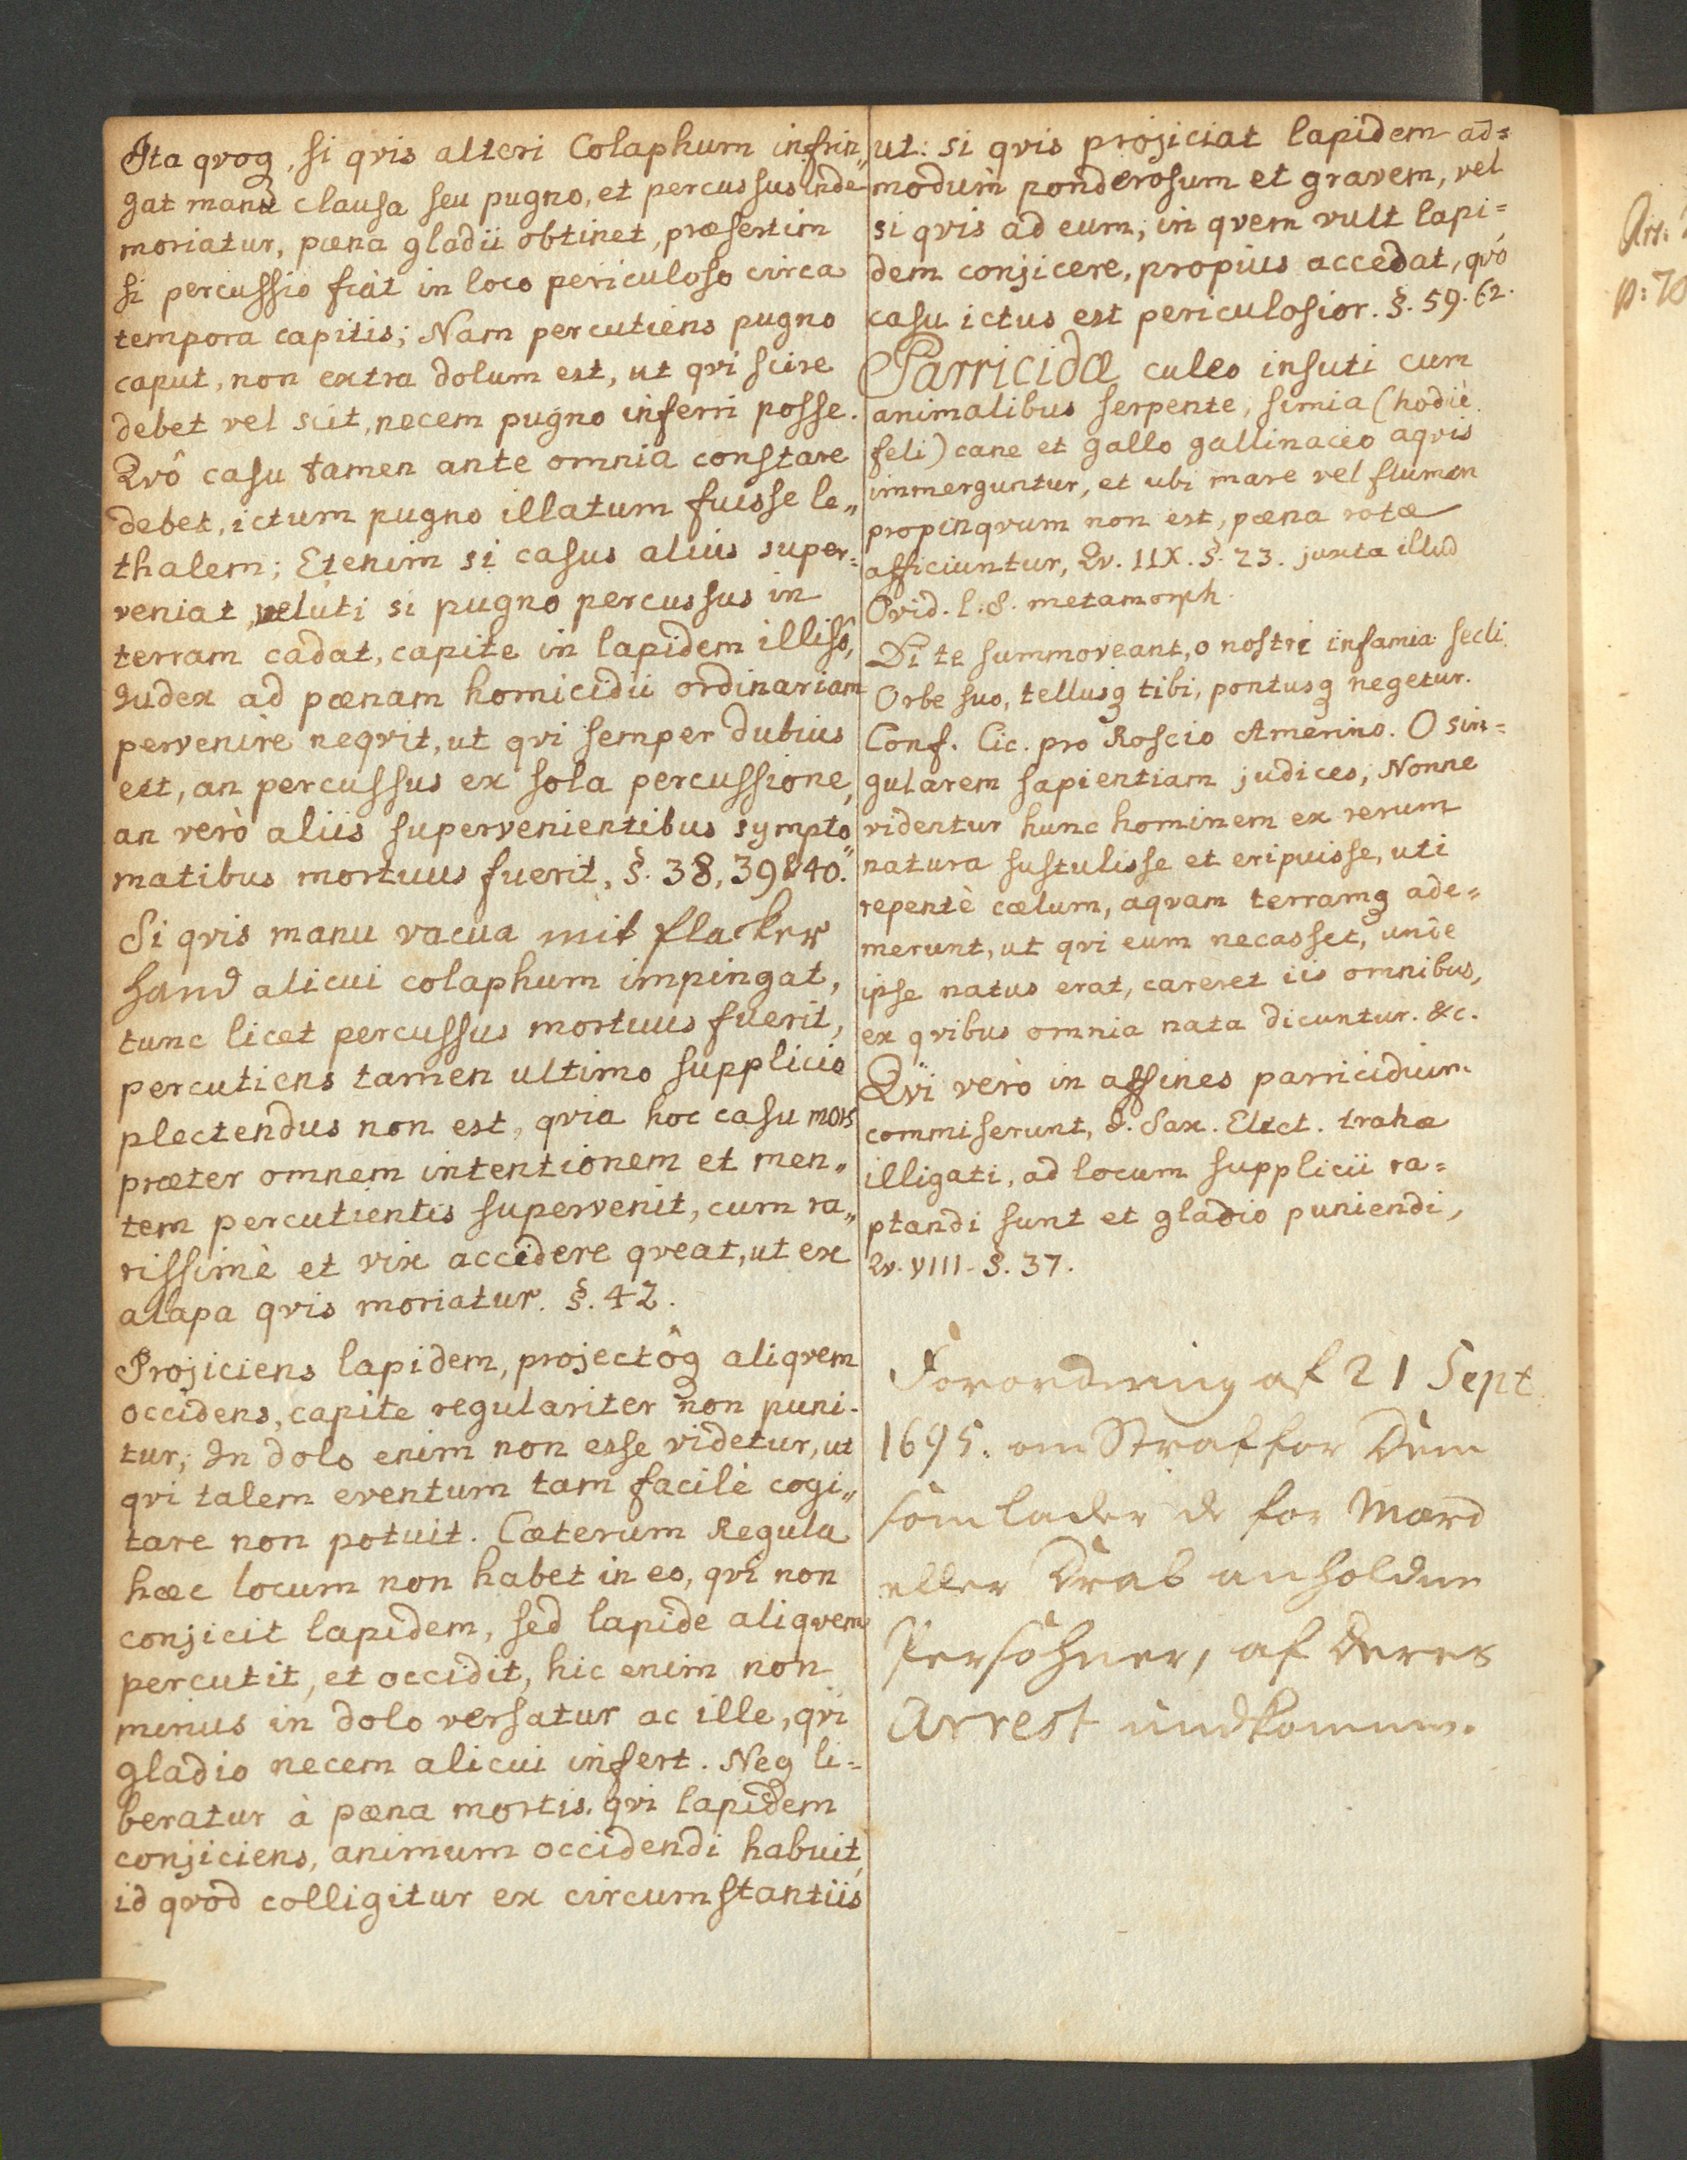 Ita qvoq, si qvis alteri Colaphum infrin„
gat manu clausa seu pugno, et percussus inde
moriatur, pœna gladii obtinet, præsertim
si percussio fiat in loco periculoso circa
tempora capitis; Nam percutiens pugno
caput, non extra dolum est, ut qvi scire
debet vel scit, necem pugno inferri posse.
Qvô casu tamen ante omnia constare
debet, ictum pugno illatum fuisse le„
thalem; Etenim si casus alius super=
veniat, veluti si pugno percussus in
terram cadat, capite in lapidem illisô,
Judex ad pœnam homicidii ordinariam
pervenire neqvit, ut qvi semper dubius
est, an percussus ex sola percussione,
an verò aliis supervenientibus sympto„
matibus mortuus fuerit, §. 38, 39 & 40.
Si qvis manu vacua mit flacker
Hand alicui colaphum impingat,
tunc licet percussus mortuus fuerit,
percutiens tamen ultimo supplicio
plectendus non est, qvia hoc casu mors
præter omnem intentionem et men„
tem percutientis supervenit, cum ra„
rissimè et vix accidere qveat, ut ex
alapa qvis moriatur. §. 42.
Projiciens lapidem, projectôq aliqvem
occidens, capite regulariter non puni-
tur; In dolo enim non esse videtur, ut
qvi talem eventum tam facilè cogi„
tare non potuit. Cæterum Regula
hæc locum non habet in eo, qvi non
conjicit lapidem, sed lapide aliqvem
percutit, et occidit, hic enim non
minus in dolo versatur ac ille, qvi
gladio necem alicui infert. Neq li=
beratur à pœna mortis, qvi lapidem
conjiciens, animum occidendi habuit,
id qvod colligitur ex circumstantiis
ut: si qvis projiciat lapidem ad=
modum ponderosum et gravem, vel
si qvis ad eum, in qvem vult lapi=
dem conjicere, propius accedat, qvô
casu ictus est periculosior. §. 59. 62.
Parricidæ culeo insuti cum
animalibus serpente, simia (hodiè
feli) cane et gallo gallinaceo aqvis
immerguntur, et ubi mare vel flumen
propinqvum non est, pœna rotæ
afficiuntur, Qv. IIX. §. 23. juxta illud
Ovid. l. 8. metamorph.
Di te summoveant, o nostri infamia secli
Orbe suo, tellusq tibi, pontusq negetur.
Conf. Cic. pro Roscio Amerino. O sin=
gularem sapientiam judices; Nonne
videntur hunc hominem ex rerum
natura sustulisse et eripuisse, uti
repentè cœlum, aqvam terramq ade=
merunt, ut qvi eum necasset, unde
ipse natus erat, careret iis omnibus,
ex qvibus omnia nata dicuntur. &c.
Qvi verò in affines parricidium
commiserunt, d. Sax. Elect. trahæ
illigati, ad locum supplicii ra=
ptandi sunt et gladio puniendi,
Qv. VIII. §. 37.
Forordning af 21 Sept.
1695. om Straf for Dem
som lader de for Mord
eller Drab anholdne
Persohner, af deres
Arrest undkomme.
Arr.
p: 70